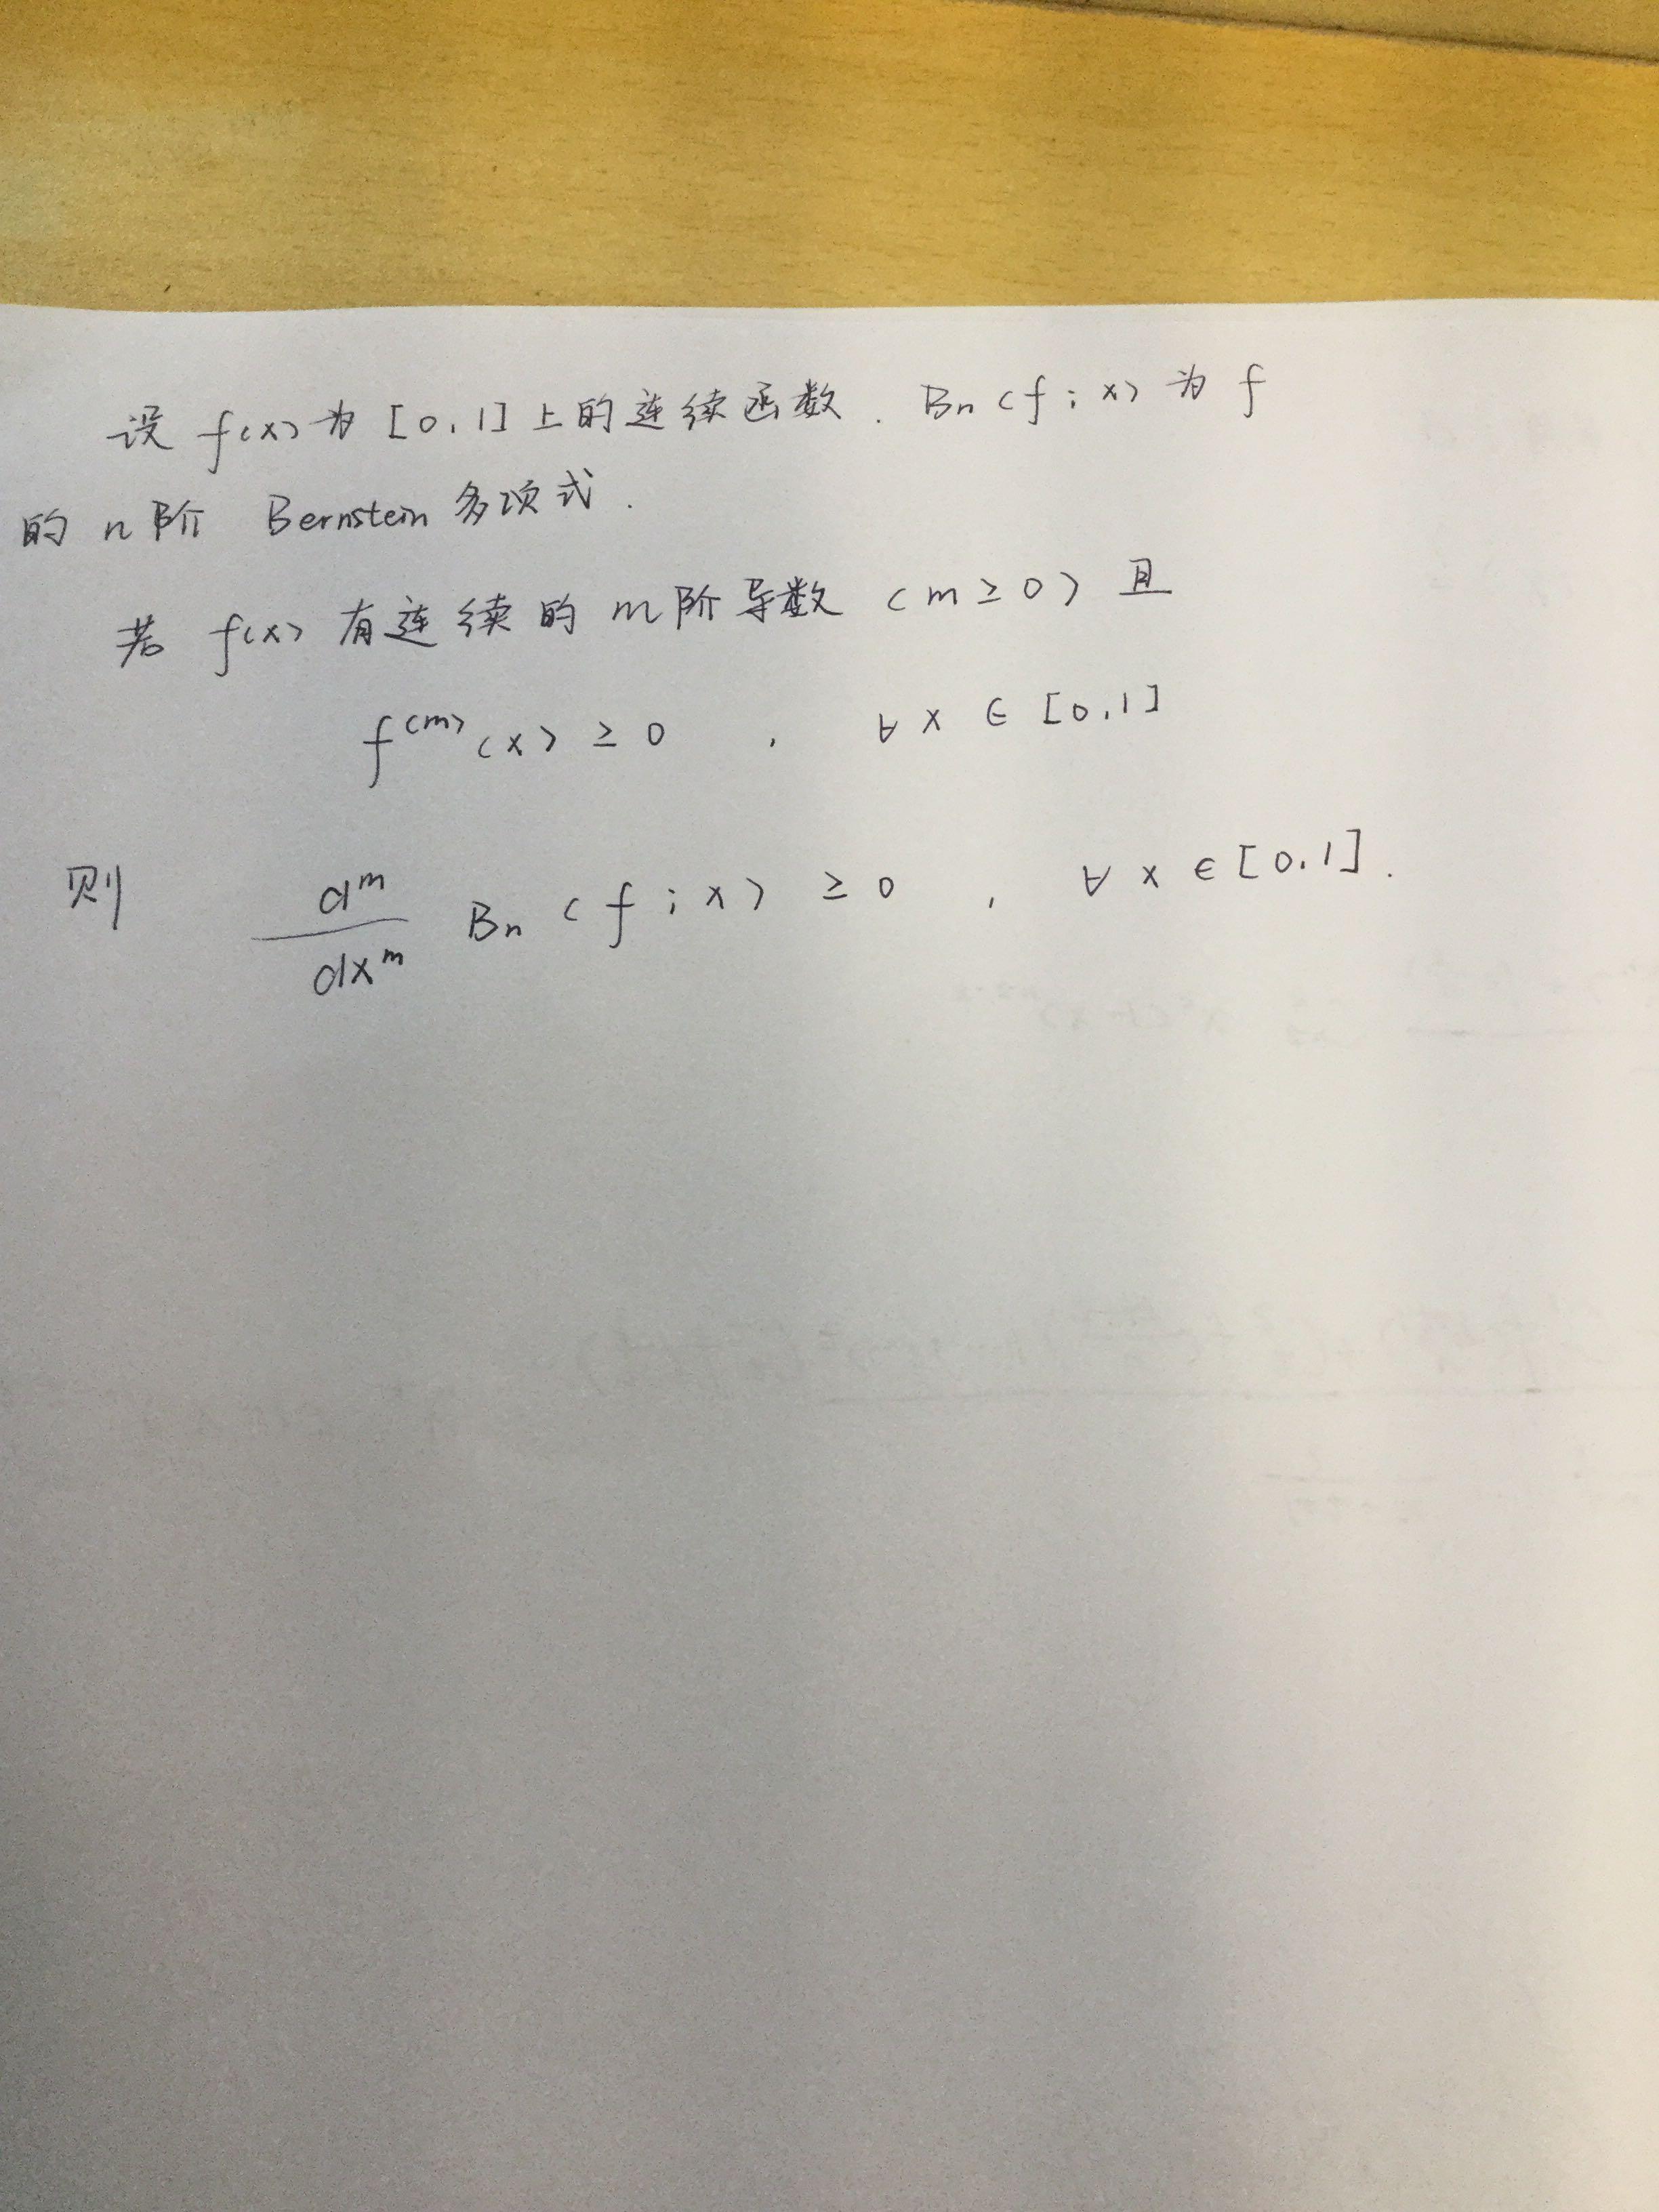 设 f(x) 为 [0,1] 上的连续函数. Bn(f;x) 为 f
的 n阶 Bernstein 多项式.
若 f(x) 有连续的 m阶导数 (m≥0) 且
f^(m)(x) ≥ 0 , ∀ x ∈ [0,1]
则 d^m/dx^m Bn(f;x) ≥ 0 , ∀ x ∈ [0,1].